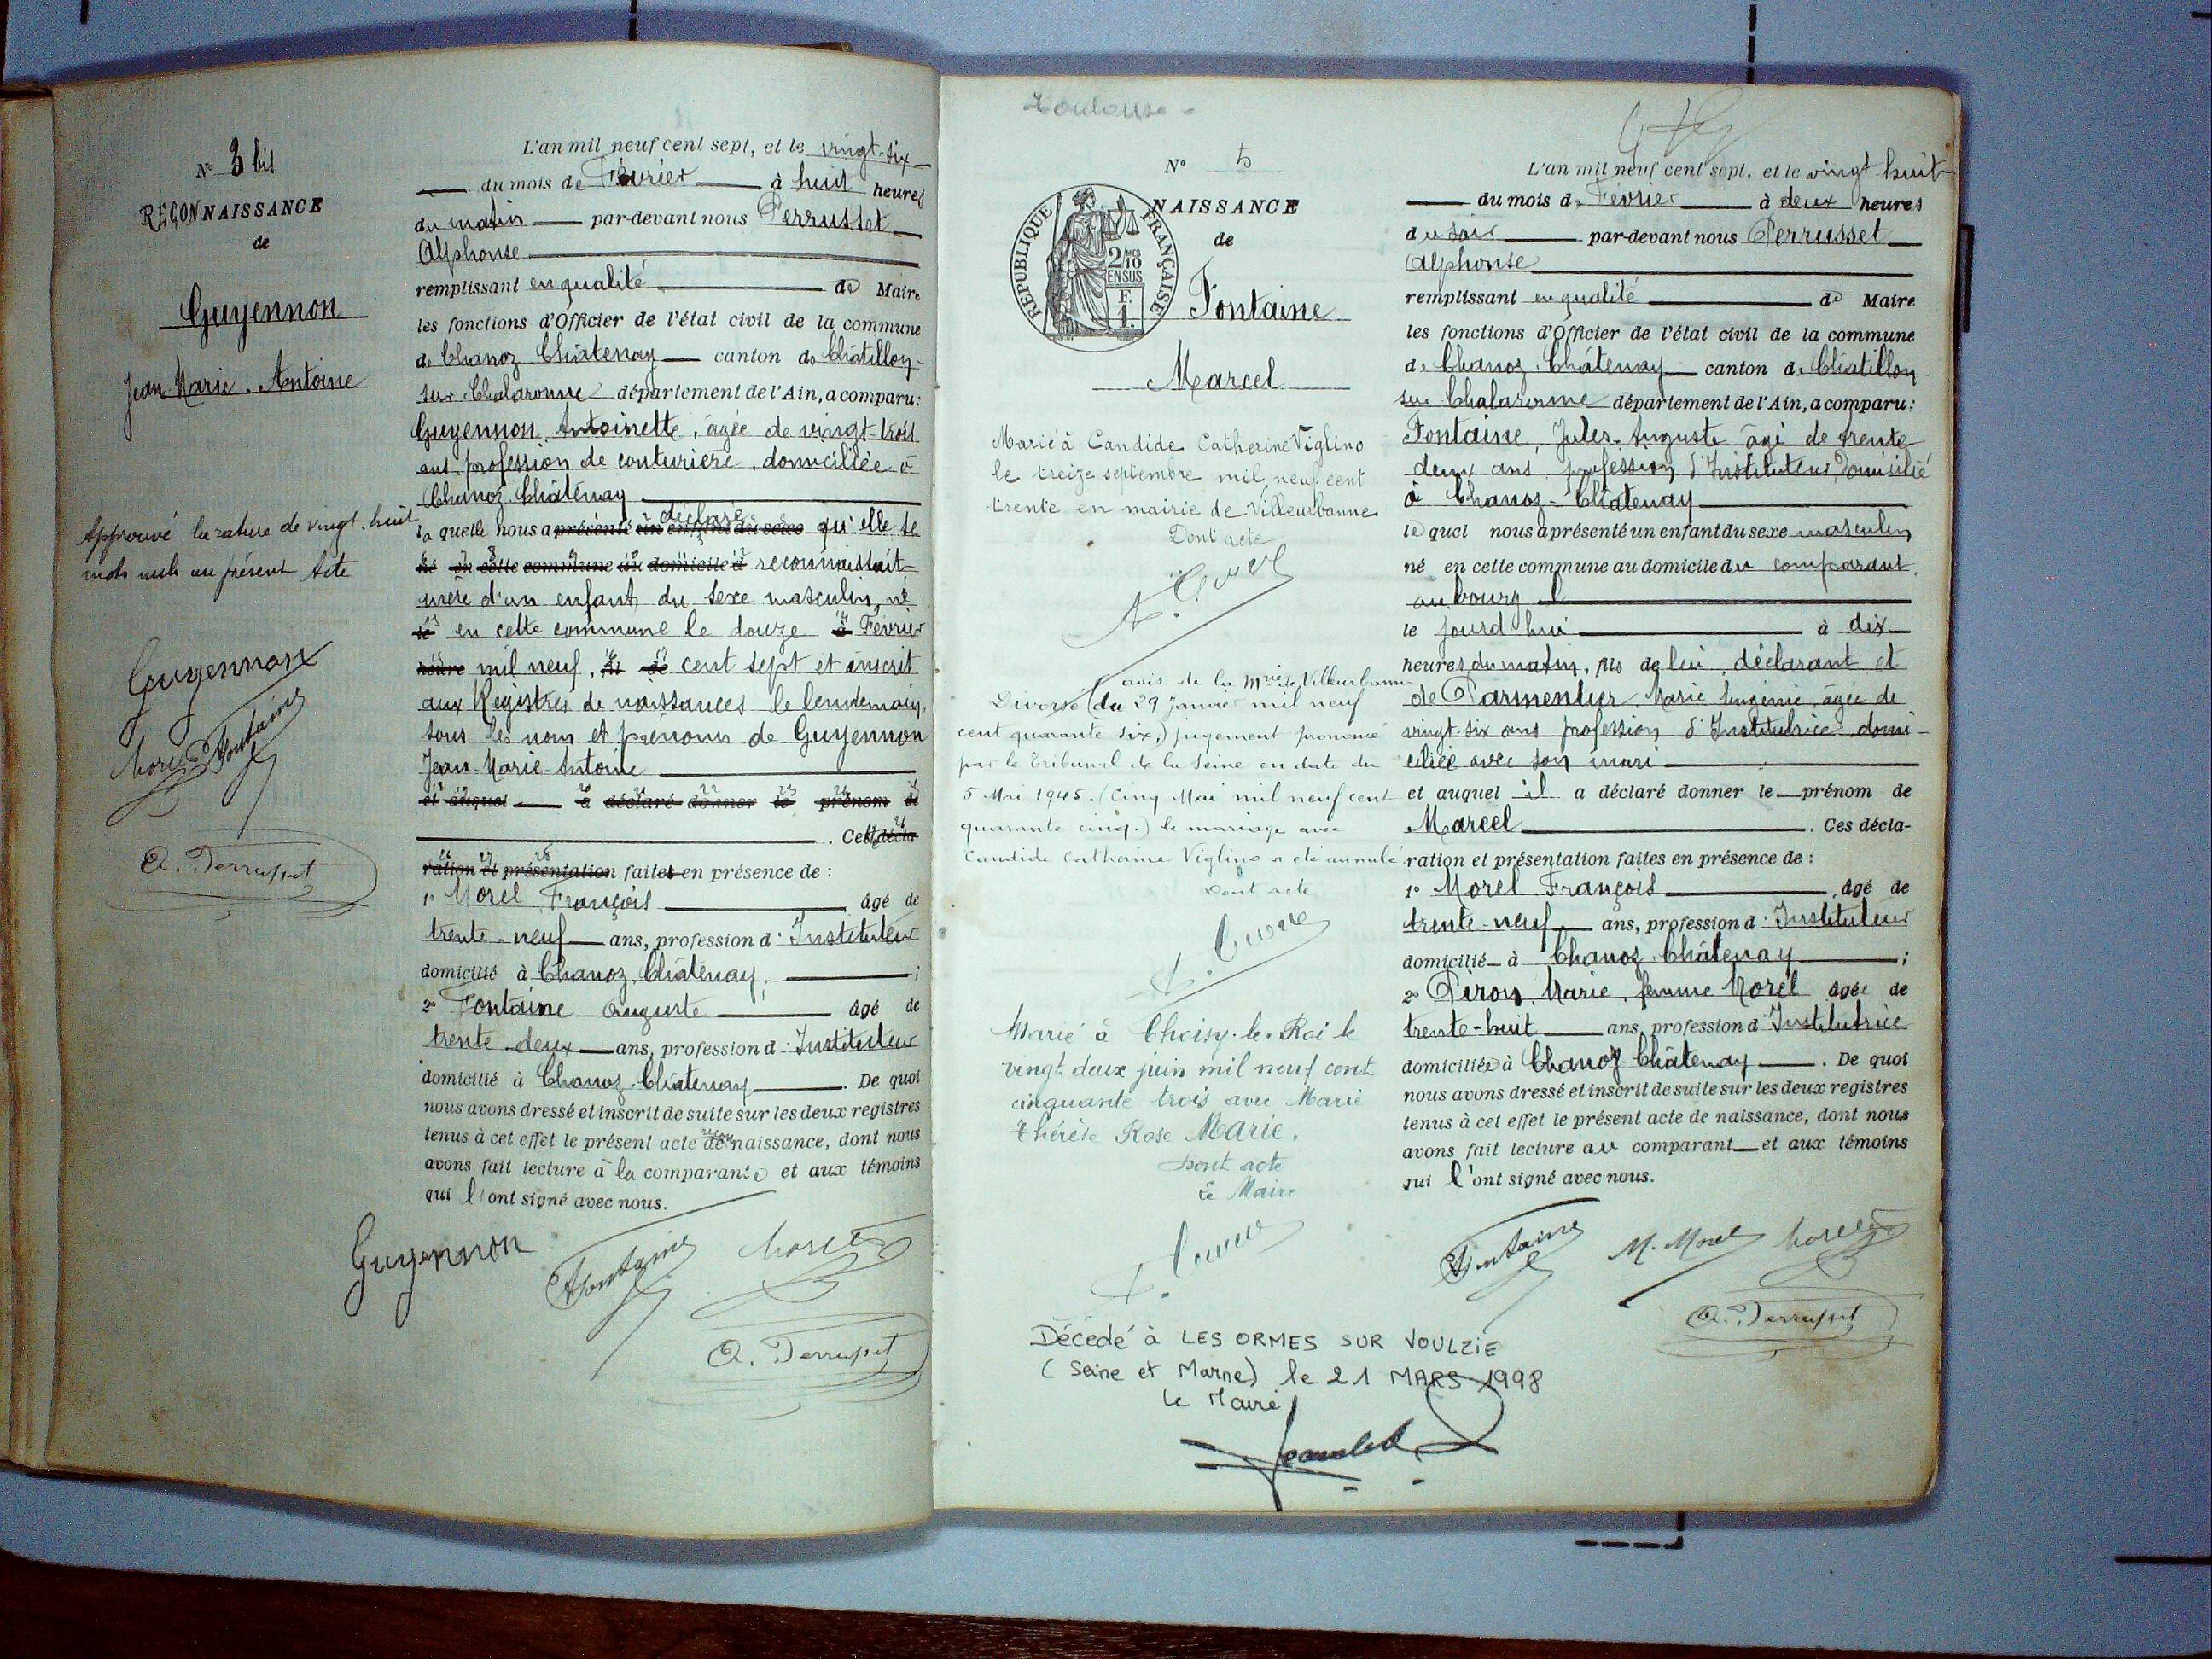 N° 3 bis
RECONNAISSANCE
de
Guyennon
Jean-Marie-Antoine
Approuvé la rature de vingt-huit
mots nuls au présent Acte
Guyennon
Morel Fontaine
A. Perrusset
L'an mil neuf cent sept, et le vingt-six
du mois de Février à huit heures
du matin par-devant nous Perrusset
Alphonse
remplissant en qualité de Maire
les fonctions d'Officier de l'état civil de la commune
de Chanoz-Châtenay canton de Châtillon-
sur-Chalaronne département de l'Ain, a comparu:
Guyennon, Antoinette, âgée de vingt-trois
ans profession de couturière, domiciliée à
Chanoz-Châtenay
laquelle nous a présenté un enfant du sexe déclaré qu'elle se
né en cette commune au domicile d reconnaissait
mère d'un enfant du sexe masculin, né
le en cette commune le douze à Février
heure mil neuf, de cent sept et inscrit
aux Registres de naissances le lendemain,
sous les nom et prénoms de Guyennon
Jean-Marie-Antoine
et auquel a déclaré donner le prénom de
. Cette décla-
ration et présentation faites en présence de :
1° Morel François âgé de
trente-neuf ans, profession d'Instituteur
domicilié à Chanoz-Châtenay ;
2° Fontaine Auguste âgé de
trente-deux ans, profession d'Instituteur
domicilié à Chanoz-Châtenay . De quoi
nous avons dressé et inscrit de suite sur les deux registres
tenus à cet effet le présent acte de naissance, dont nous
avons fait lecture à la comparante et aux témoins
qui l'ont signé avec nous.
Guyennon Fontaine Morel
A. Perrusset
Toulouse
N° 5
NAISSANCE
de
RÉPUBLIQUE FRANÇAISE
2/10
EN SUS
F.
1.
Fontaine
Marcel
Marié à Candide Catherine Viglino
le treize septembre mil neuf cent
trente en mairie de Villeurbanne
Dont acte
avis de la Mrie de Villeurbanne
Divorse (du 29 Janvier mil neuf
cent quarante six,) jugement prononcé
par le Tribunal de la Seine en date du
5 Mai 1945. (Cinq Mai mil neuf cent
quarante cinq.) le mariage avec
Candide Catherine Viglino a été annulé
Dont acte
Marié à Choisy-le-Roi le
vingt deux juin mil neuf cent
cinquante trois avec Marie
Thérèse Rose MARIE.
Dont acte
Le Maire
Décédé à LES ORMES SUR VOULZIE
(Seine et Marne) le 21 MARS 1998
Le Maire
L'an mil neuf cent sept, et le vingt huit
du mois de Février à deux heures
du soir par-devant nous Perrusset
Alphonse
remplissant en qualité de Maire
les fonctions d'Officier de l'état civil de la commune
de Chanoz-Châtenay canton de Châtillon
sur Chalaronne département de l'Ain, a comparu:
Fontaine, Jules-Auguste âgé de trente
deux ans, profession d'Instituteur, domicilié
à Chanoz-Châtenay
lequel nous a présenté un enfant du sexe masculin
né en cette commune au domicile du comparant,
au bourg
le jourd'hui à dix
heures du matin, fils de lui, déclarant et
de Parmentier, Marie Eugénie, âgée de
vingt-six ans profession d'Institutrice domi-
ciliée avec son mari
et auquel il a déclaré donner le prénom de
Marcel . Ces décla-
ration et présentation faites en présence de :
1° Morel François âgé de
trente-neuf ans, profession d'Instituteur
domicilié à Chanoz-Châtenay ;
2° Piron, Marie, femme Morel âgée de
trente-huit ans, profession d'Institutrice
domiciliée à Chanoz-Châtenay . De quoi
nous avons dressé et inscrit de suite sur les deux registres
tenus à cet effet le présent acte de naissance, dont nous
avons fait lecture au comparant et aux témoins
qui l'ont signé avec nous.
Fontaine M. Morel Morel
A. Perrusset